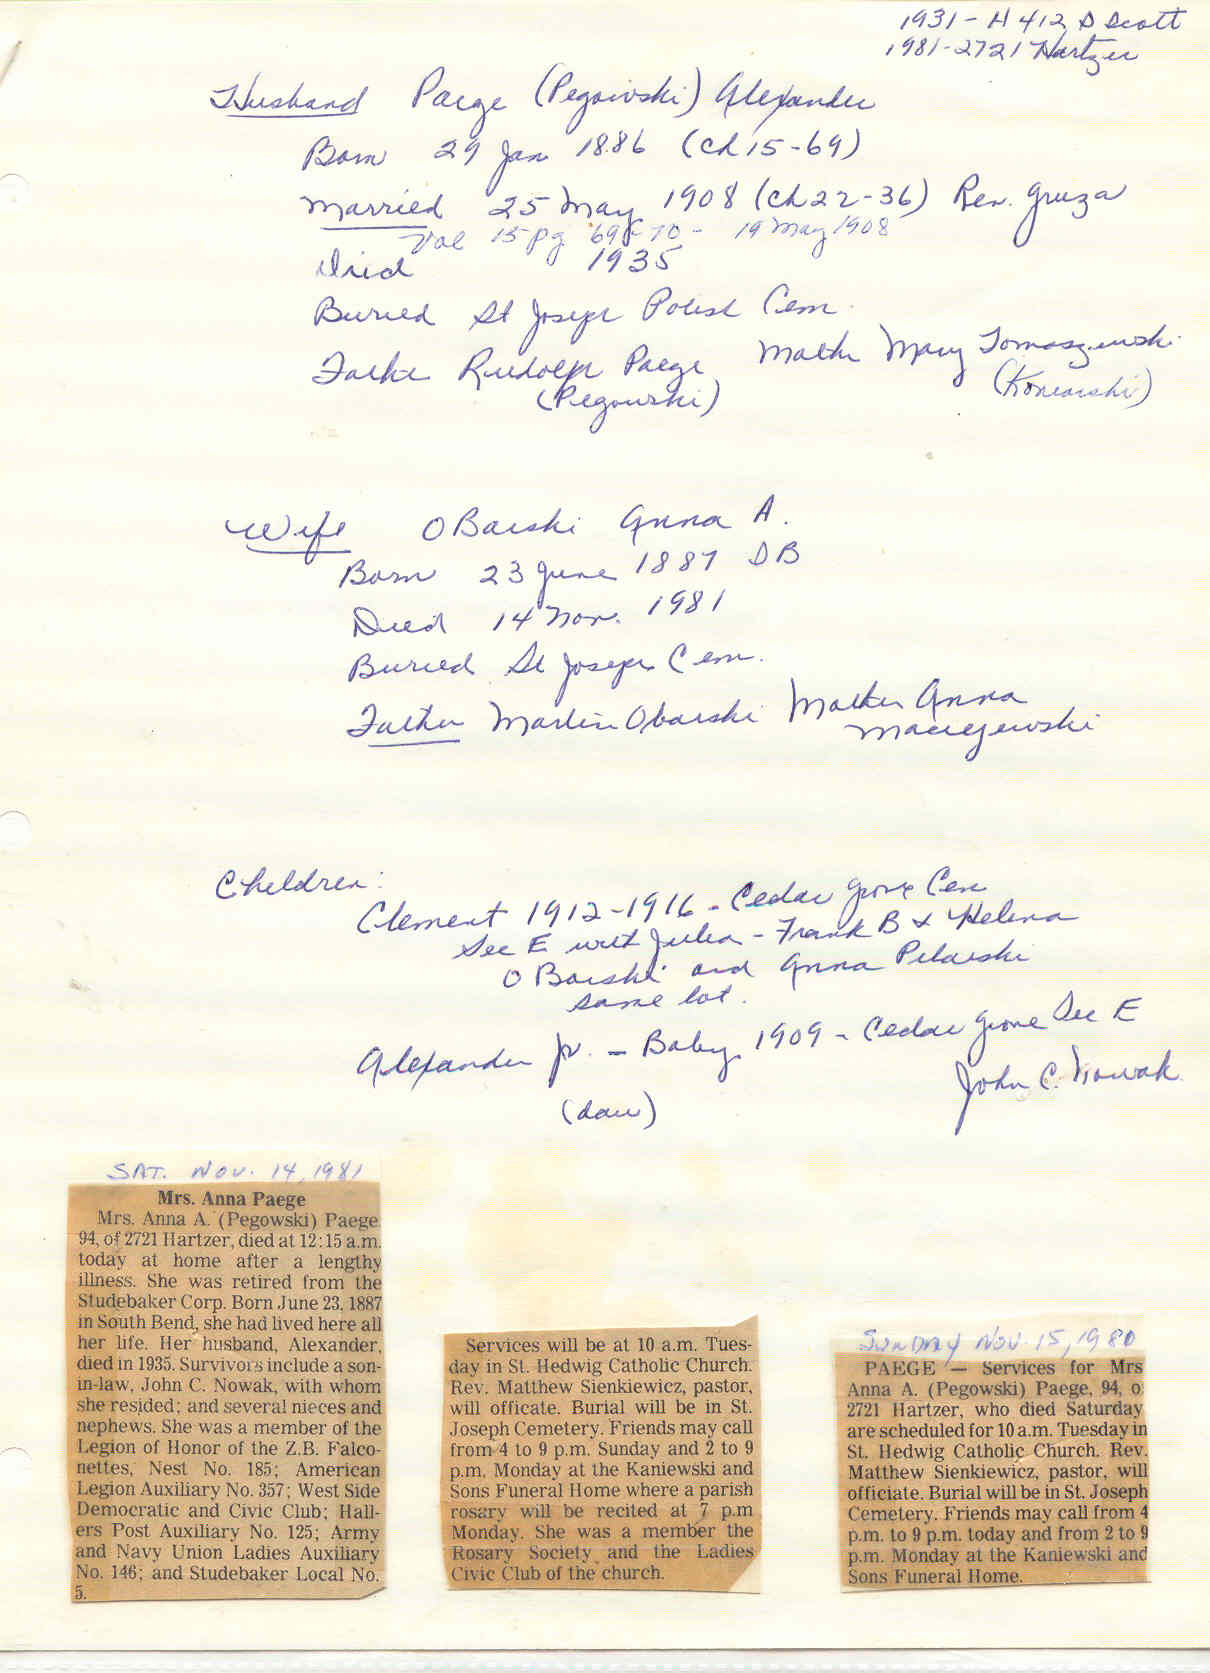 1931 - H 412 S Scott
1981-2721 Hartzer
Husband Paege (Pegowski) Alexander
Born 29 Jan 1886 (Ch 15-69)
Married 25 May 1908 (Ch 22-36) Rev. Gruza
Vol 15 pg 69 & 70 - 19 May 1908
Died 1935
Buried St Joseph Polish Cem.
Father Rudolph Paege Mother Mary Tomaszewski
(Pegowski) (Konwarski)
Wife OBarski Anna A.
Born 23 June 1887 SB
Died 14 Nov. 1981
Buried St Joseph Cem.
Father Martin Obarski Mother Anna
Maciejewski
Children:
Clement 1912-1916 - Cedar Grove Cem
Sec E with Julia - Frank B & Helena
OBarski and Anna Pilarski
same lot.
Alexander Jr. - Baby 1909 - Cedar Grove Sec E
(dau) John C. Nowak
SAT. NOV. 14, 1981
Mrs. Anna Paege
Mrs. Anna A. (Pegowski) Paege
94, of 2721 Hartzer, died at 12:15 a.m.
today at home after a lengthy
illness. She was retired from the
Studebaker Corp. Born June 23, 1887
in South Bend, she had lived here all
her life. Her husband, Alexander,
died in 1935. Survivors include a son-
in-law, John C. Nowak, with whom
she resided; and several nieces and
nephews. She was a member of the
Legion of Honor of the Z.B. Falco-
nettes, Nest No. 185; American
Legion Auxiliary No. 357; West Side
Democratic and Civic Club; Hall-
ers Post Auxiliary No. 125; Army
and Navy Union Ladies Auxiliary
No. 146; and Studebaker Local No.
5.
Services will be at 10 a.m. Tues-
day in St. Hedwig Catholic Church.
Rev. Matthew Sienkiewicz, pastor,
will officate. Burial will be in St.
Joseph Cemetery. Friends may call
from 4 to 9 p.m. Sunday and 2 to 9
p.m. Monday at the Kaniewski and
Sons Funeral Home where a parish
rosary will be recited at 7 p.m
Monday. She was a member the
Rosary Society and the Ladies
Civic Club of the church.
SUNDAY NOV. 15, 1980
PAEGE — Services for Mrs
Anna A. (Pegowski) Paege, 94, o
2721 Hartzer, who died Saturday
are scheduled for 10 a.m. Tuesday in
St. Hedwig Catholic Church. Rev.
Matthew Sienkiewicz, pastor, will
officiate. Burial will be in St. Joseph
Cemetery. Friends may call from 4
p.m. to 9 p.m. today and from 2 to 9
p.m. Monday at the Kaniewski and
Sons Funeral Home.